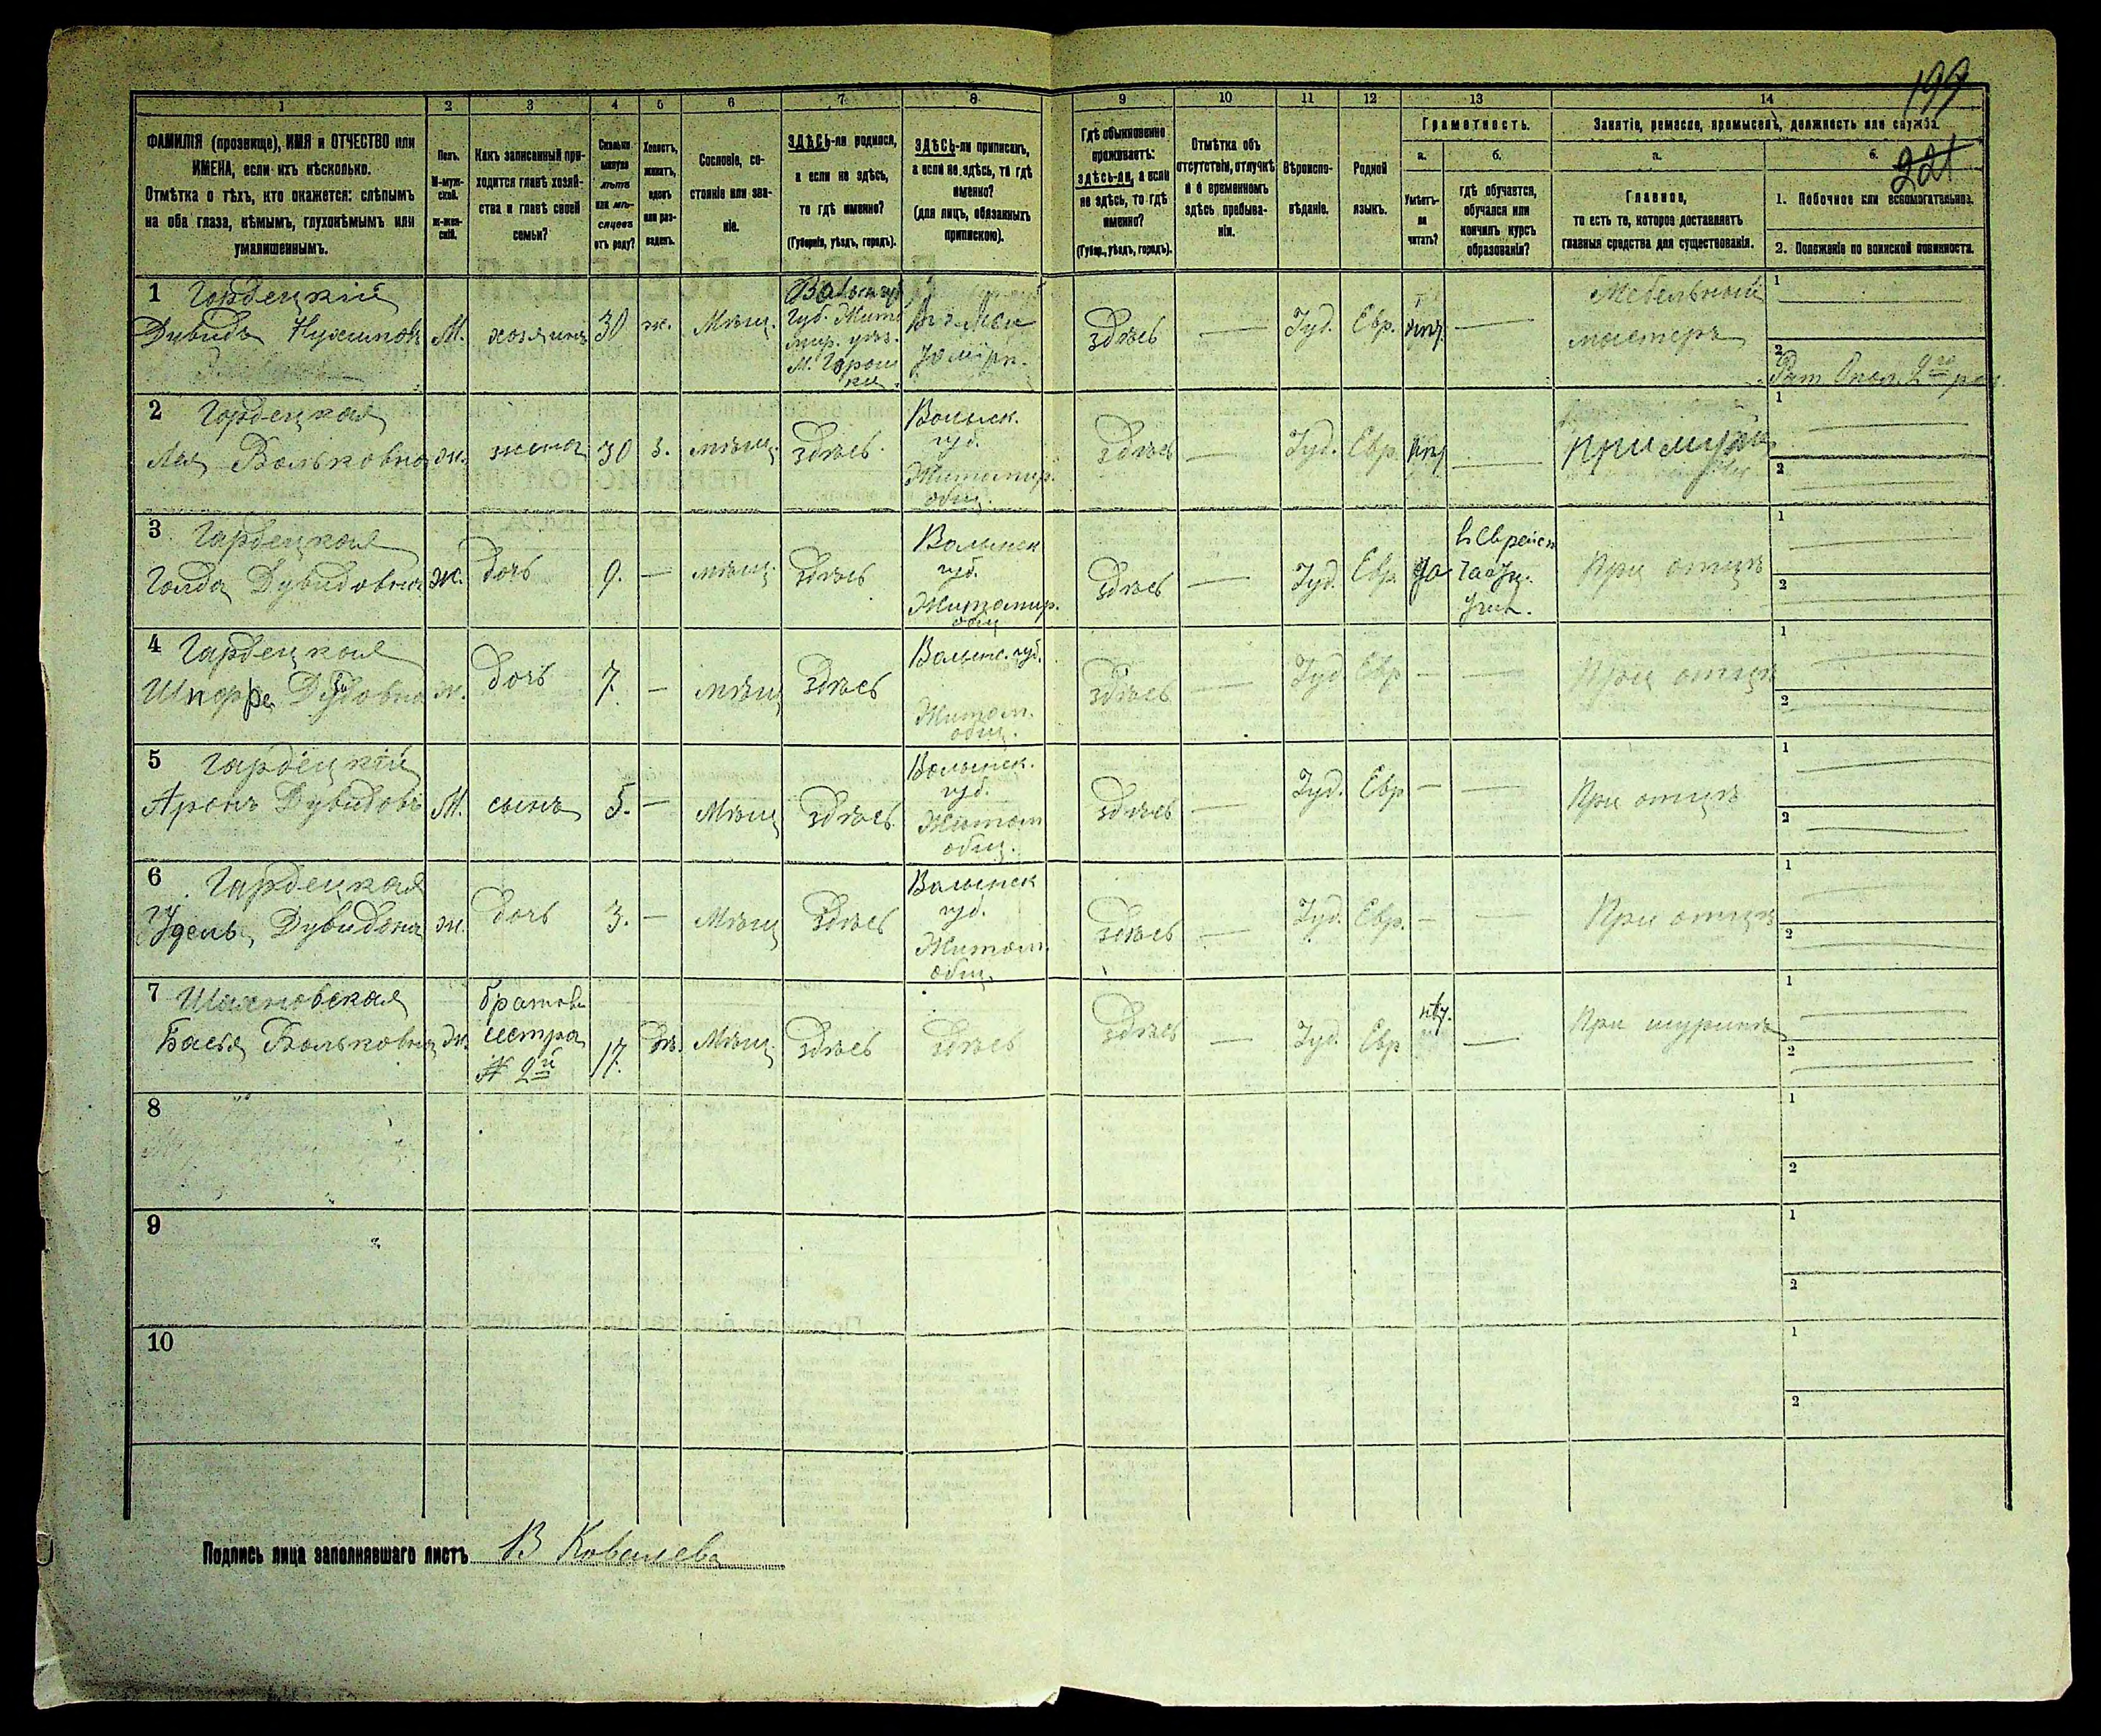 199
221
1 2 3 4 5 6 7 8 9 10 11 12 13 14
ФАМИЛІЯ (прозвище), ИМЯ и ОТЧЕСТВО или
ИМЕНА, если ихъ нѣсколько.
Отмѣтка о тѣхъ, кто окажется: слѣпымъ
на оба глаза, нѣмымъ, глухонѣмымъ или
умалишеннымъ.
Полъ.
М-муж-
ской.
ж-жен-
скій.
Какъ записанный при-
ходится главѣ хозяй-
ства и главѣ своей
семьи?
Сколько
минуло
лѣтъ
или мѣ-
сяцевъ
отъ роду?
Холостъ,
женатъ,
вдовъ
или раз-
веденъ.
Сословіе, со-
стояніе или зва-
ніе.
ЗДѢСЬ-ли родился,
а если не здѣсь,
то гдѣ именно?
(Губернія, уѣздъ, городъ).
ЗДѢСЬ-ли приписанъ,
а если не здѣсь, то гдѣ
именно?
(для лицъ, обязанныхъ
припискою).
Гдѣ обыкновенно
проживаетъ:
здѣсь-ли, а если
не здѣсь, то гдѣ
именно?
(Губер., уѣздъ, городъ).
Отмѣтка объ
отсутствіи, отлучкѣ
и о временномъ
здѣсь пребыва-
ніи.
Вѣроиспо-
вѣданіе.
Родной
языкъ.
Грамотность.
а.
Умѣетъ-
ли
читать?
б.
гдѣ обучается,
обучался или
кончилъ курсъ
образованія?
Занятіе, ремесло, промыселъ, должность или служба.
а.
Главное,
то есть то, которое доставляетъ
главныя средства для существованія.
б.
1. Побочное или вспомогательное.
2. Положеніе по воинской повинности.
1 Гордецкій
Дувидъ Нухимовъ
М.
хозяинъ
30
ж.
Мѣщ.
губ. Жито
мир. уѣз.
М. Горош
ки
здѣсь
—
Іуд.
Евр.
—
Мебельный
мастеръ
1
2
2 Гордецкая
Лея Вольковна
ж.
жена
30
з.
мѣщ.
здѣсь
Волынск.
губ.
Житомир.
общ.
здѣсь
—
Іуд.
Евр.
—
При мужѣ
1
2
3 Гардецкая
Голда Дувидовна
ж.
дочь
9.
—
мѣщ.
здѣсь
Волынск
губ.
Житомир.
общ
здѣсь
—
Іуд.
Евр.
да
При отцѣ
1
2
4 Гардецкая
ж.
дочь
7.
—
мѣщ
здѣсь
Волынс. губ.
Житом.
общ.
здѣсь
—
Іуд
Евр
—
—
При отцѣ
1
2
5 Гардецкій
Аронъ Дувидовъ
М.
сынъ
5.
—
Мѣщ
здѣсь
Волынск.
губ.
Житом
общ.
здѣсь
—
Іуд.
Евр
—
—
При отцѣ
1
2
6 Гардецкая
Удель Дувидовна
ж.
дочь
3.
—
Мѣщ
здѣсь
Волынск
губ.
Житом.
общ.
здѣсь
—
Іуд.
Евр.
—
—
При отцѣ
1
2
7
Бася Вольковна
ж.
сестра
№ 2й
17.
дѣ.
Мѣщ.
здѣсь
здѣсь
здѣсь
—
Іуд.
Евр
—
При шуринѣ
1
2
8
1
2
9
1
2
10
1
2
Подпись лица заполнявшаго листъ В Ковалева